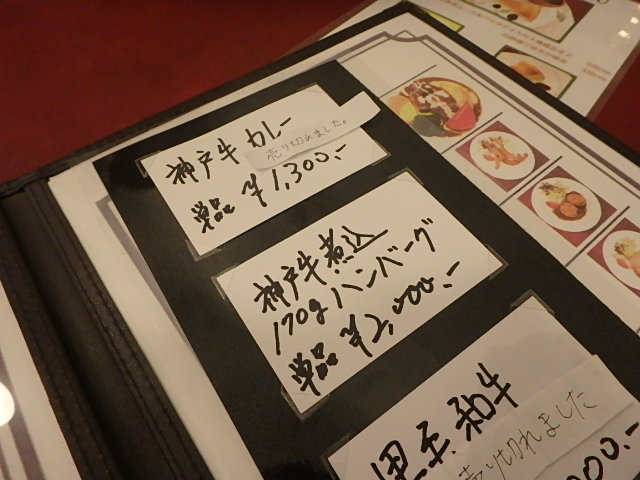 神戸牛 カレー
売り切れました。
単品 ¥1,300.-
神戸牛煮込
170g ハンバーグ
単品 ¥2,000.-
黒毛和牛
売り切れました
000.-